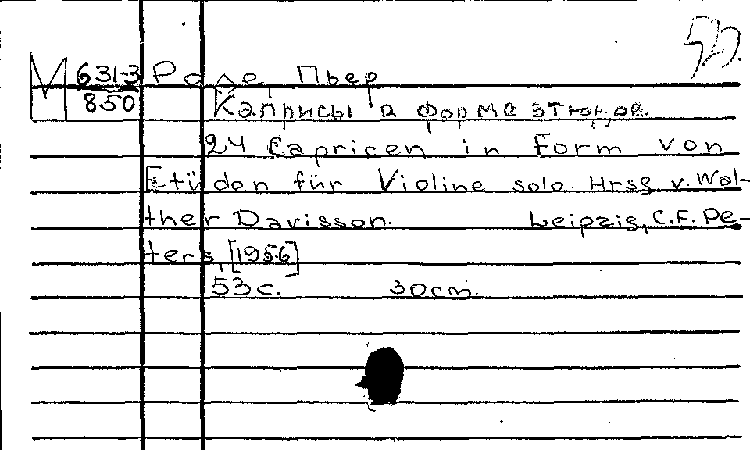 М 631-3 Роде, Пьер
850 Каприсы в форме этюдов.
24 Capricen in Form von
Etüden für Violine solo. Hrsg. v. Wal-
ther Davisson. Leipzig, C.F. Pe-
ters, [1956]
53 с. 30 cm.